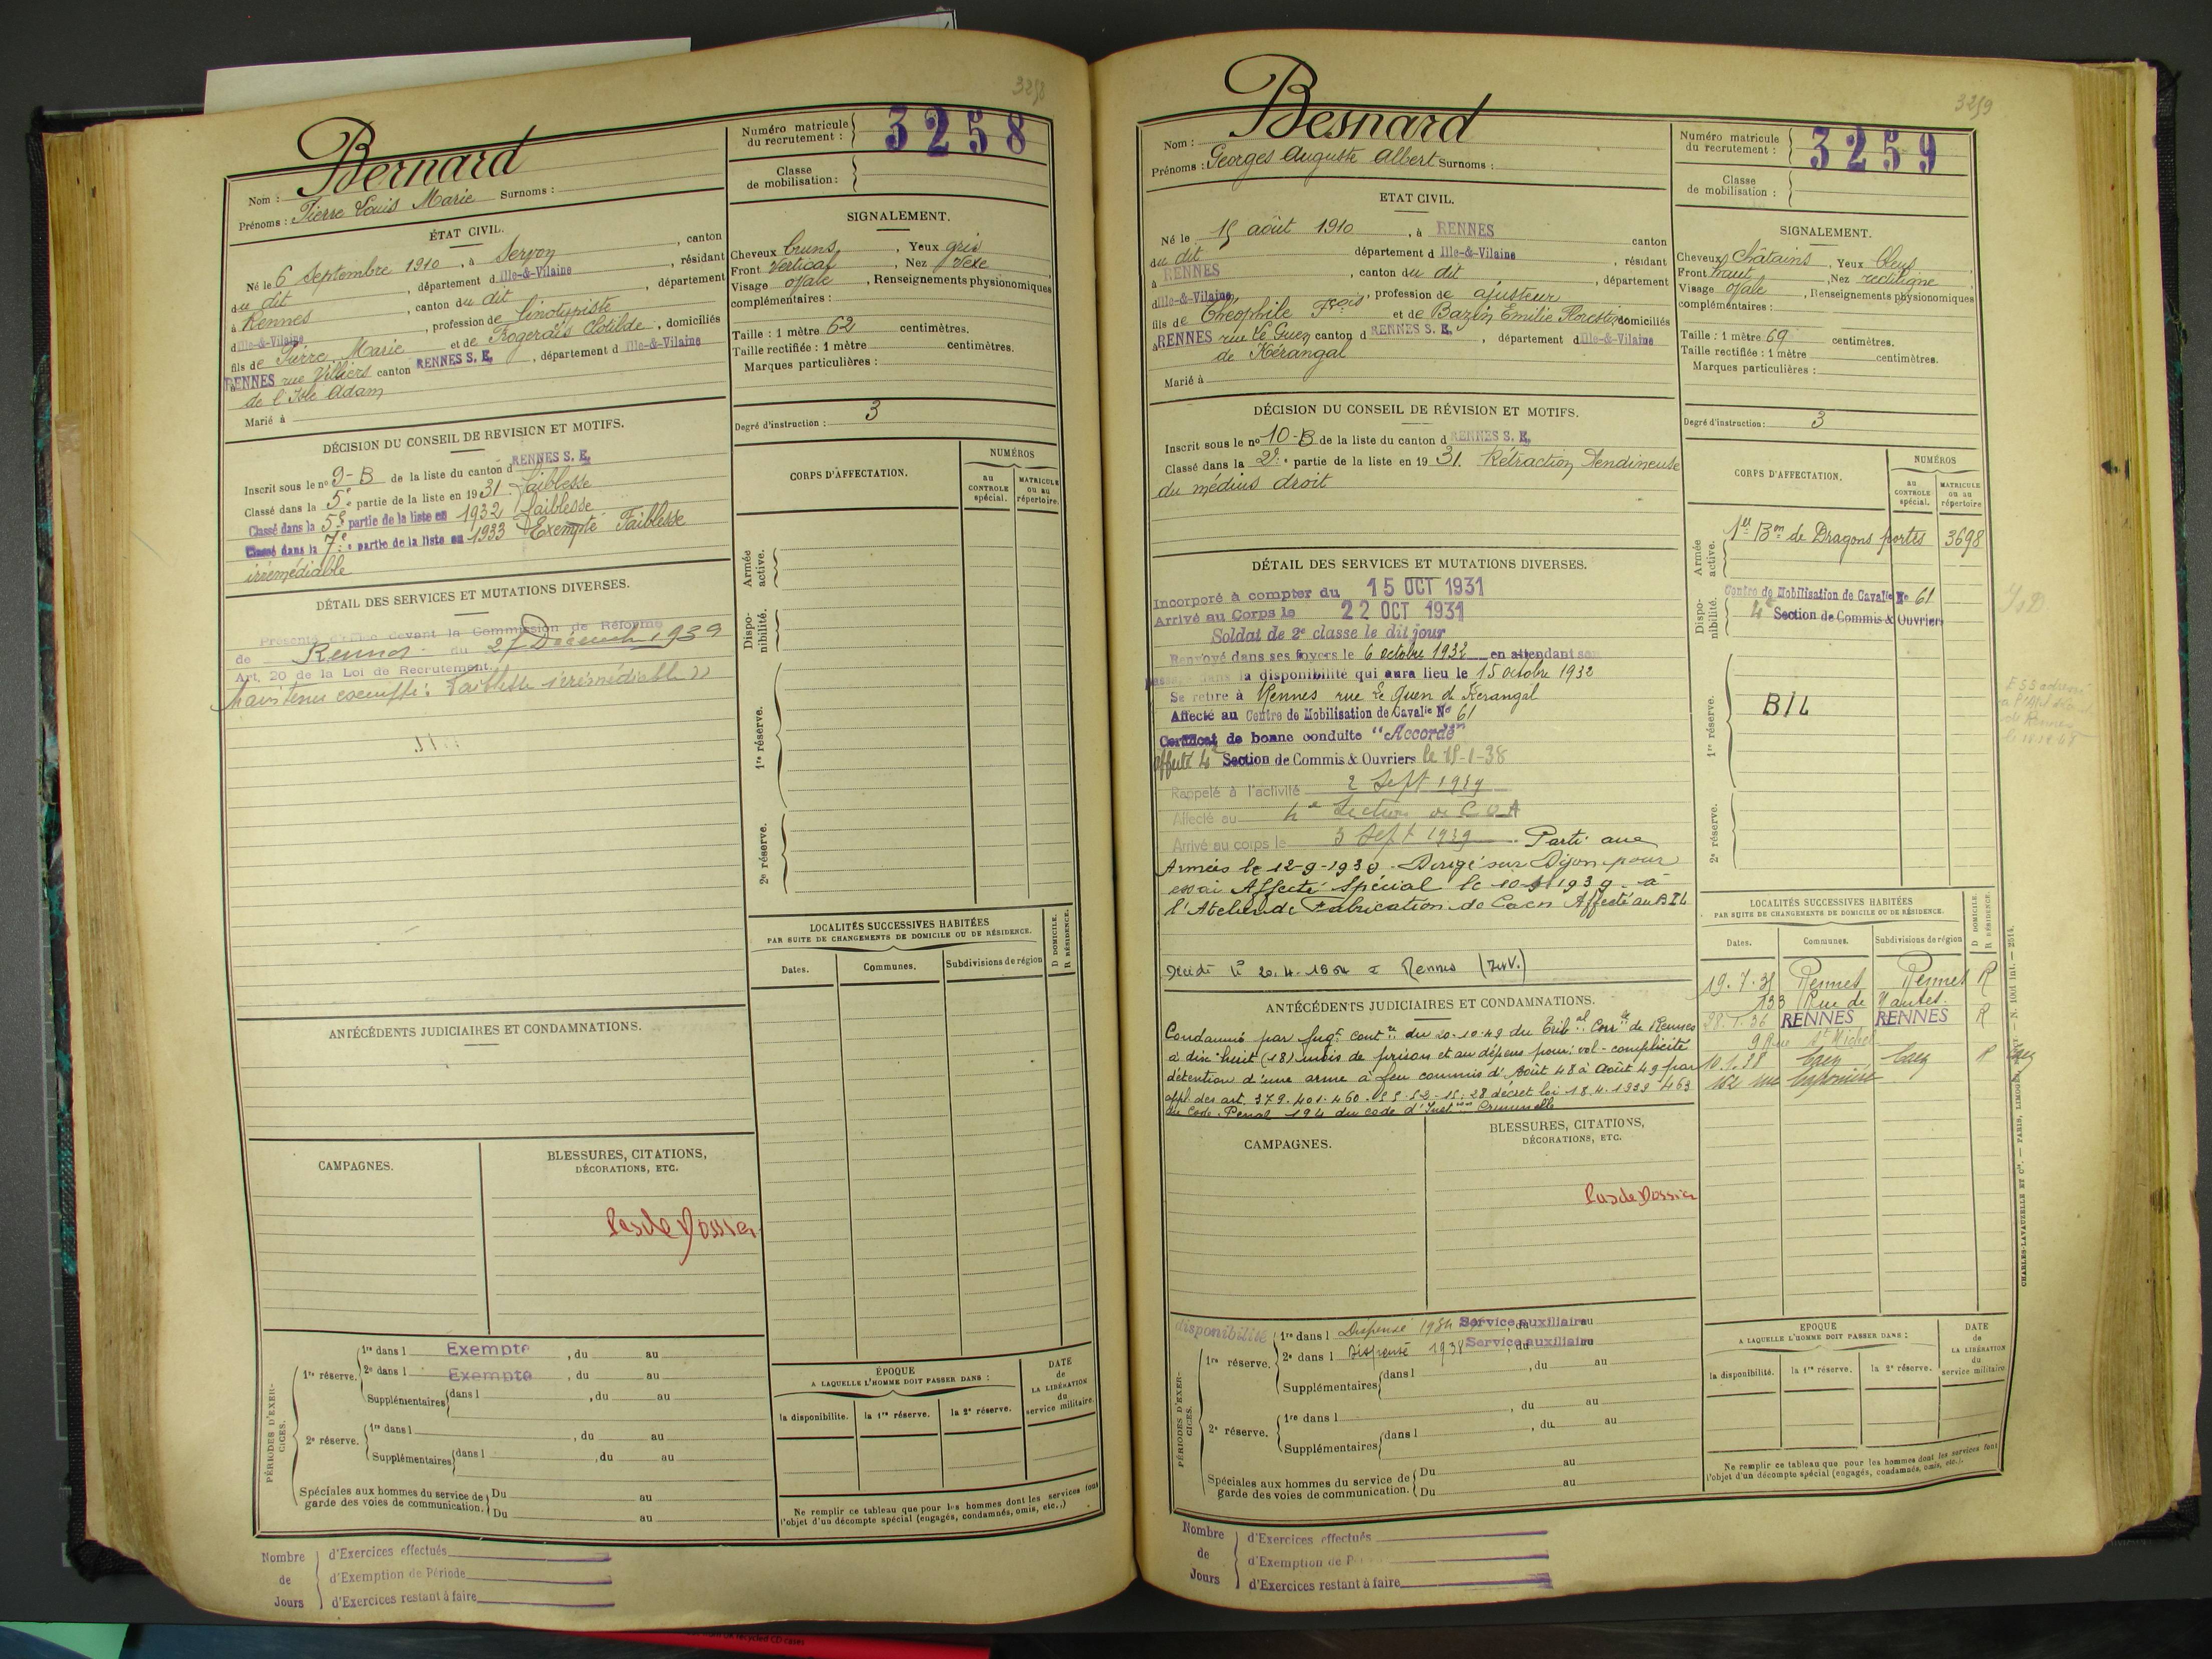 3258
Bernard
Nom :
Prénoms : Pierre Louis Marie Surnoms :
Numéro matricule du recrutement : 3258
Classe de mobilisation :
ÉTAT CIVIL.
Né le 6 Septembre 1910, à Servon, canton
du dit, département d Ille-&-Vilaine, résidant
à Rennes, canton du dit, département
d Ille-&-Vilaine, profession de linotypiste
fils de Pierre Marie et de Rogerais Clotilde, domiciliés
à RENNES rue Villiers canton RENNES S. E., département d Ille-&-Vilaine
de l'Isle Adam
Marié à
SIGNALEMENT.
Cheveux bruns, Yeux gris
Front vertical, Nez vexe
Visage ovale, Renseignements physionomiques
complémentaires :
Taille : 1 mètre 62 centimètres.
Taille rectifiée : 1 mètre centimètres.
Marques particulières :
Degré d'instruction : 3
DÉCISION DU CONSEIL DE REVISION ET MOTIFS.
Inscrit sous le nº 9-B de la liste du canton d RENNES S. E.
Classé dans la 5e partie de la liste en 1931. Faiblesse
Classé dans la 5e partie de la liste en 1932 Faiblesse
Classé dans la 7e partie de la liste en 1933 Exempté Faiblesse
irrémédiable
DÉTAIL DES SERVICES ET MUTATIONS DIVERSES.
Présenté d'office devant la Commission de Réforme
de Rennes du 27 Décemb 1939
Art. 20 de la Loi de Recrutement.
Maintenu exempté. Faiblesse irrémédiable
CORPS D'AFFECTATION.
NUMÉROS
au CONTROLE spécial.
MATRICULE ou au répertoire.
Armée active.
Disponibilité.
1re réserve.
2e réserve.
LOCALITÉS SUCCESSIVES HABITÉES
PAR SUITE DE CHANGEMENTS DE DOMICILE OU DE RÉSIDENCE.
D DOMICILE.
R RÉSIDENCE.
Dates. Communes. Subdivisions de région
ANTÉCÉDENTS JUDICIAIRES ET CONDAMNATIONS.
CAMPAGNES.
BLESSURES, CITATIONS,
DÉCORATIONS, ETC.
Pas de Dossier
PÉRIODES D'EXERCICES.
1re réserve.
1re dans l Exempté, du au
2e dans l Exempté, du au
Supplémentaires dans l, du au
2e réserve.
1re dans l, du au
Supplémentaires dans l, du au
Spéciales aux hommes du service de
garde des voies de communication.
Du au
Du au
ÉPOQUE
A LAQUELLE L'HOMME DOIT PASSER DANS :
la disponibilité. la 1re réserve. la 2e réserve.
DATE de LA LIBÉRATION du service militaire.
Ne remplir ce tableau que pour les hommes dont les services font
l'objet d'un décompte spécial (engagés, condamnés, omis, etc.,)
Nombre de Jours
d'Exercices effectués
d'Exemption de Période
d'Exercices restant à faire
3259
Besnard
Nom :
Prénoms : Georges Auguste Albert Surnoms :
Numéro matricule du recrutement : 3259
Classe de mobilisation :
ETAT CIVIL.
Né le 15 août 1910, à RENNES canton
du dit département d Ille-&-Vilaine, résidant
à RENNES, canton du dit, département
d Ille-&-Vilaine, profession de ajusteur
fils de Théophile Fçois et de Bazin Emilie Florestine domiciliés
à RENNES rue Le Guen canton d RENNES S. E., département d Ille-&-Vilaine
de Kérangal
Marié à
SIGNALEMENT.
Cheveux châtains, Yeux bleus
Front haut, Nez rectiligne
Visage ovale, Renseignements physionomiques
complémentaires :
Taille : 1 mètre 69 centimètres.
Taille rectifiée : 1 mètre centimètres.
Marques particulières :
Degré d'instruction : 3
DÉCISION DU CONSEIL DE RÉVISION ET MOTIFS.
Inscrit sous le nº 10-B de la liste du canton d RENNES S. E.
Classé dans la 2e partie de la liste en 1931. Rétraction tendineuse
du médius droit
DÉTAIL DES SERVICES ET MUTATIONS DIVERSES.
Incorporé à compter du 15 OCT 1931
Arrivé au Corps le 22 OCT 1931
Soldat de 2e classe le dit jour
Renvoyé dans ses foyers le 6 octobre 1932 en attendant son
passage dans la disponibilité qui aura lieu le 15 octobre 1932
Se retire à Rennes rue Le Guen de Kerangal
Affecté au Centre de Mobilisation de Cavalie No 61
Certificat de bonne conduite "Accordé"
affecté 4e Section de Commis & Ouvriers le 15-1-38
Rappelé à l'activité 2 Sept 1939
Affecté au 4e Section de C O A
Arrivé au corps le 3 Sept 1939. Parti aux
Armées le 12-9-1939. Dirigé sur Dijon pour
essai Affecté Spécial le 1939 à
l'Atelier de Fabrication de Caen Affecté au BIL
Décédé le 20.4.1954 à Rennes
CORPS D'AFFECTATION.
NUMÉROS
au CONTROLE spécial.
MATRICULE ou au répertoire
Armée active.
1er Bon de Dragons portés 3698
Disponibilité.
Centre de Mobilisation de Cavalie No 61
4e Section de Commis & Ouvriers
1re réserve.
BIL
2e réserve.
LOCALITÉS SUCCESSIVES HABITÉES
PAR SUITE DE CHANGEMENTS DE DOMICILE OU DE RÉSIDENCE.
D DOMICILE.
R RÉSIDENCE.
Dates. Communes. Subdivisions de région
19.7.35 Rennes Rennes R
133 Rue de Nantes.
28.7.36 RENNES RENNES R
9 Rue St Michel
10.1.38 Caen Caen R Caen
ANTÉCÉDENTS JUDICIAIRES ET CONDAMNATIONS.
Condamné par Jugt contre du 20.10.49 du Tribal Corrle de Rennes
à dix huit (18) mois de prison et au dépens pour: vol - complicité
détention d'une arme à feu commis d'Août 48 à Août 49 par
appl. des art. 379.401.460.55.52 - 15.28 décret loi 18.4.1939 463
du Code Penal 194 du code d'Inston Criminelle
CAMPAGNES.
BLESSURES, CITATIONS,
DÉCORATIONS, ETC.
Pas de Dossier
PÉRIODES D'EXERCICES.
disponibilité
1re réserve.
1re dans l Dispensé 1934 Service auxiliaire, du au
2e dans l Dispensé 1938 Service auxiliaire, du au
Supplémentaires dans l, du au
2e réserve.
1re dans l, du au
Supplémentaires dans l, du au
Spéciales aux hommes du service de
garde des voies de communication.
Du au
Du au
EPOQUE
A LAQUELLE L'HOMME DOIT PASSER DANS :
la disponibilité. la 1re réserve. la 2e réserve.
DATE de LA LIBÉRATION du service militaire.
Ne remplir ce tableau que pour les hommes dont les services font
l'objet d'un décompte spécial (engagés, condamnés, omis, etc.).
Nombre de Jours
d'Exercices effectués
d'Exemption de P
d'Exercices restant à faire
CHARLES-LAVAUZELLE ET Cie. — PARIS, LIMOGES, NANCY — N. 1001 int. — 2514.
recycled CD cases